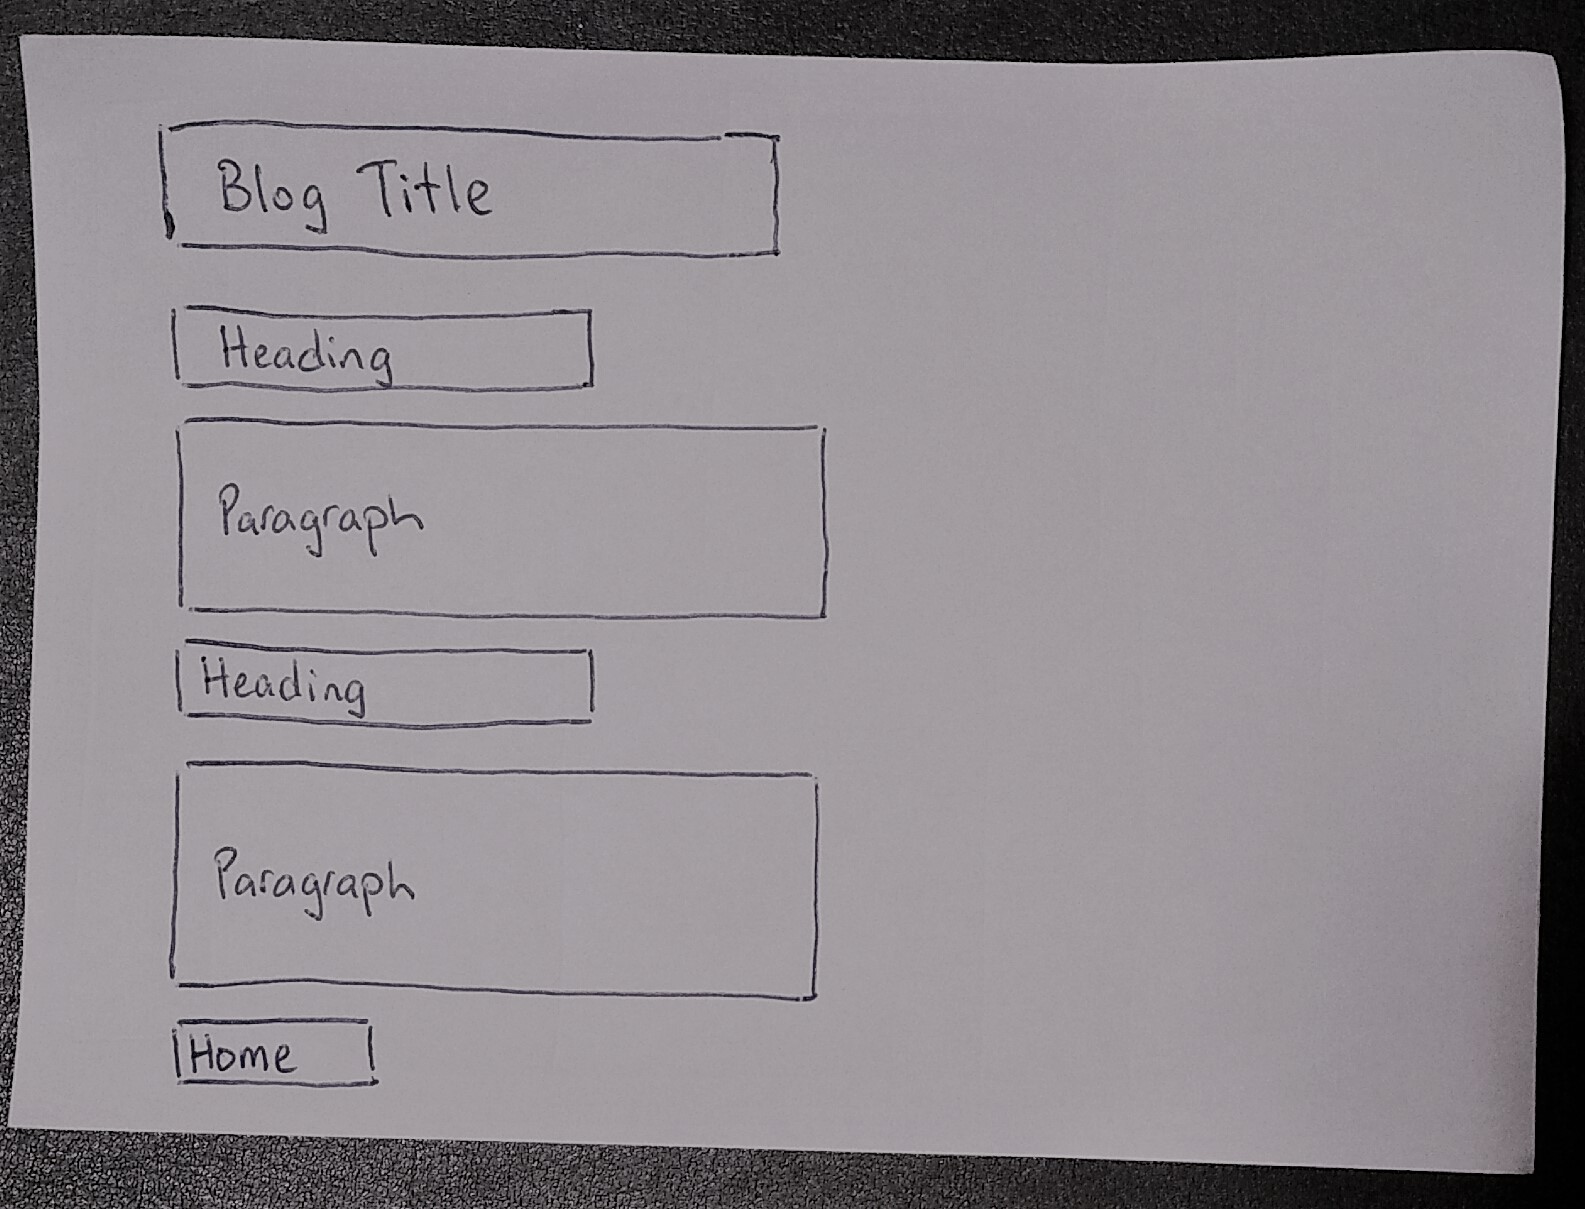 Blog Title
Heading
Paragraph
Heading
Paragraph
Home